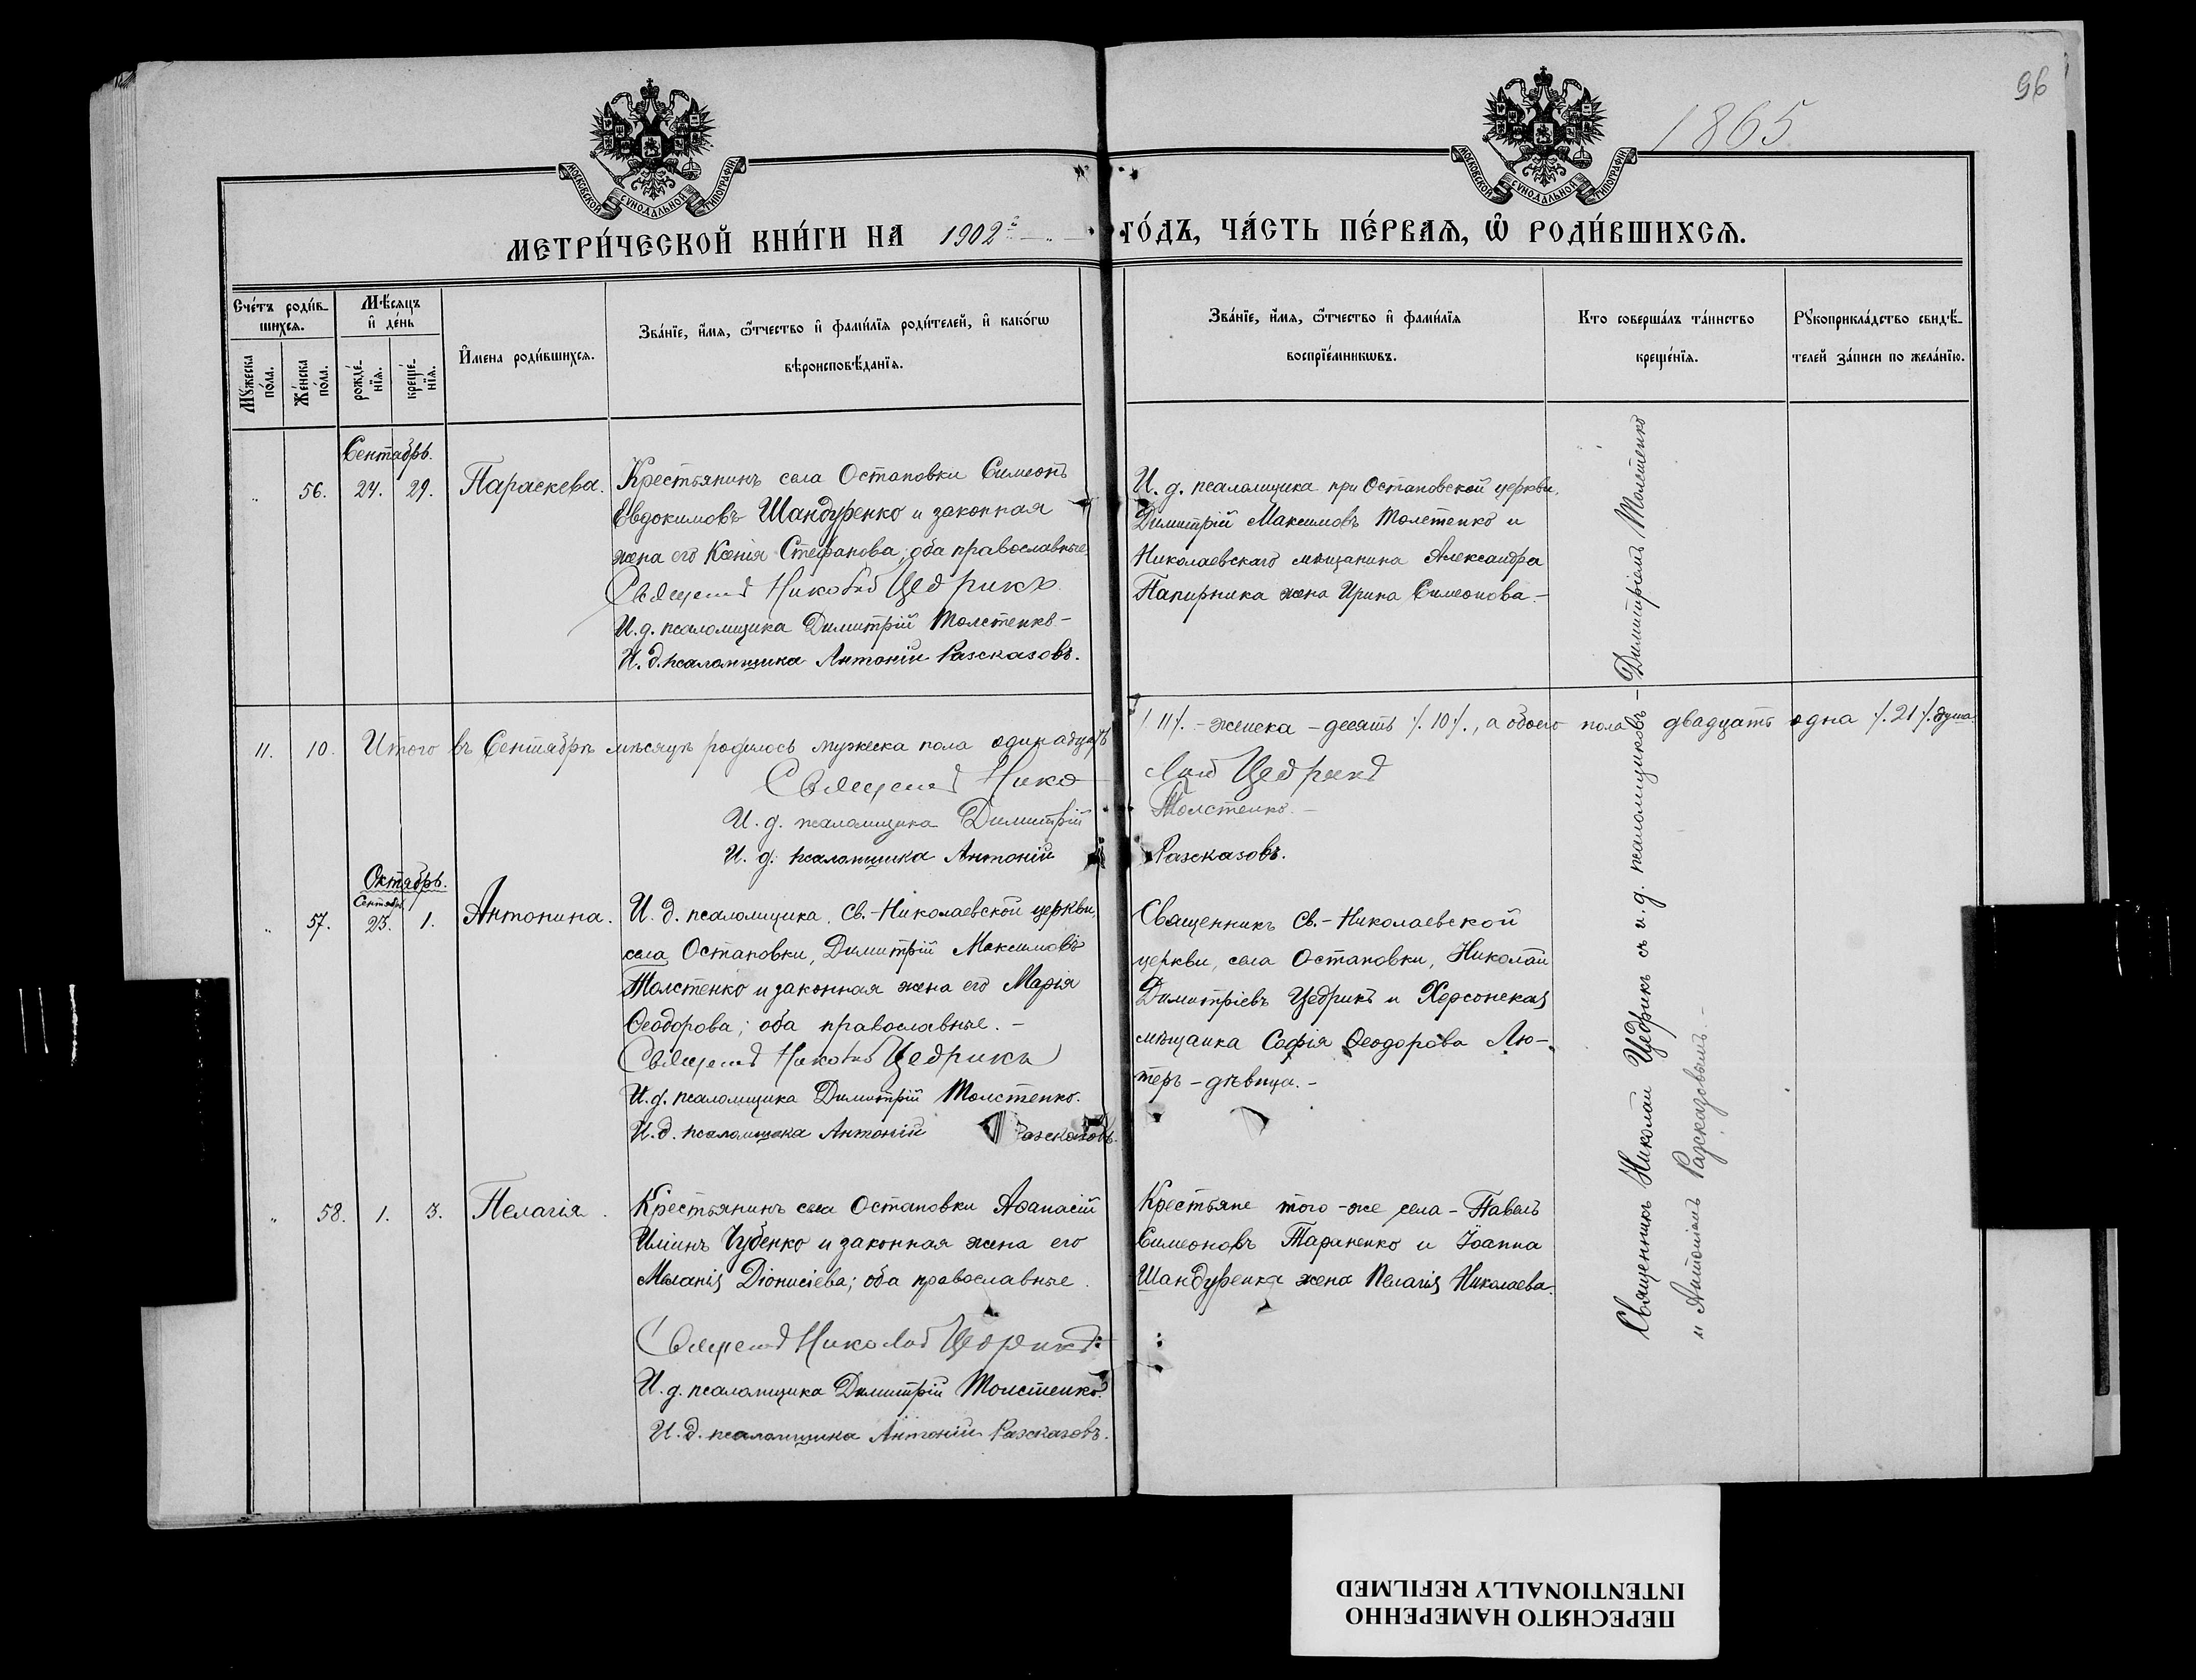 96
1865
МОСКОВСКОЙ СУНОДАЛЬНОЙ ТИПОГРАФІИ
МОСКОВСКОЙ СУНОДАЛЬНОЙ ТИПОГРАФІИ
МЕТРИ́ЧЕСКОЙ КНИ́ГИ НА 1902й ГО́ДЪ, ЧА́СТЬ ПЕ́РВАЯ, Ѡ РОДИ́ВШИХСЯ.
Сче́тъ роди́в-
шихся.
Мѣ́сяцъ
и҆ де́нь
Мꙋ́жеска по́ла.
Же́нска по́ла.
рожде́-нїя.
креще́-нїя.
И҆мена роди́вшихся.
Зва́нїе, и҆́мя, ѻ҆́тчество и҆ фами́лїя роди́телей, и҆ како́гѡ
вѣроисповѣ́данїя.
Зва́нїе, и҆́мя, ѻ҆́тчество и҆ фами́лїя
воспрїе́мникѡвъ.
Кто соверша́лъ та́инство
креще́нїя.
Рꙋкоприкла́дство свидѣ́-
телей за́писи по жела́нїю.
Сентябрь.
" 56. 24. 29. Параскева.
Крестьянинъ села Остановки Симеонъ
Евдокимовъ Шандуренко и законная
жена его Ксенія Стефанова; оба православные
Священникъ Николай Цедрикъ
И. д. псаломщика Димитрій Толстенко -
И. д. псаломщика Антоній Разсказовъ.
И. д. псаломщика при Остановской церкви,
Димитрій Максимовъ Толстенко и
Николаевскаго мѣщанина Александра
Папирника жена Ирина Симеонова. -
11. 10. Итого въ Сентябрѣ мѣсяцѣ родилось мужеска пола одинадцать /. 11 /. - женска - десять /. 10 /., а обоего пола двадцать одна /. 21 /. душа.
Священникъ Николай Цедрикъ
И. д. псаломщика Димитрій Толстенко. -
И. д. псаломщика Антоній Разсказовъ.
Октябрь.
Сентябрь
" 57. 25. 1. Антонина.
И. д. псаломщика, Св.-Николаевской церкви,
села Остановки, Димитрій Максимовъ
Толстенко и законная жена его Марія
Ѳеодорова; оба православные. -
Священникъ Николай Цедрикъ
И. д. псаломщика Димитрій Толстенко.
И. д. псаломщика Антоній Разсказовъ.
Священникъ Св.-Николаевской
церкви, села Остановки, Николай
Димитріевъ Цедрикъ и Херсонская
мѣщанка Софія Ѳеодорова Лю-
теръ - дѣвица. -
" 58. 1. 3. Пелагія.
Крестьянинъ села Остановки Аѳанасій
Иліинъ Чубенко и законная жена его
Меланія Діонисіева; оба православные.
Священникъ Николай Цедрикъ
И. д. псаломщика Димитрій Толстенко.
И. д. псаломщика Антоній Разсказовъ.
Крестьяне того-же села - Павелъ
Симеоновъ Тараненко и Іоанна
Шандуренка жена Пелагія Николаева.
Священникъ Николай Цедрикъ съ и. д. псаломщиковъ - Димитріемъ Толстенко
и Антоніемъ Разсказовымъ. -
ПЕРЕСНЯТО НАМЕРЕННО
INTENTIONALLY REFILMED